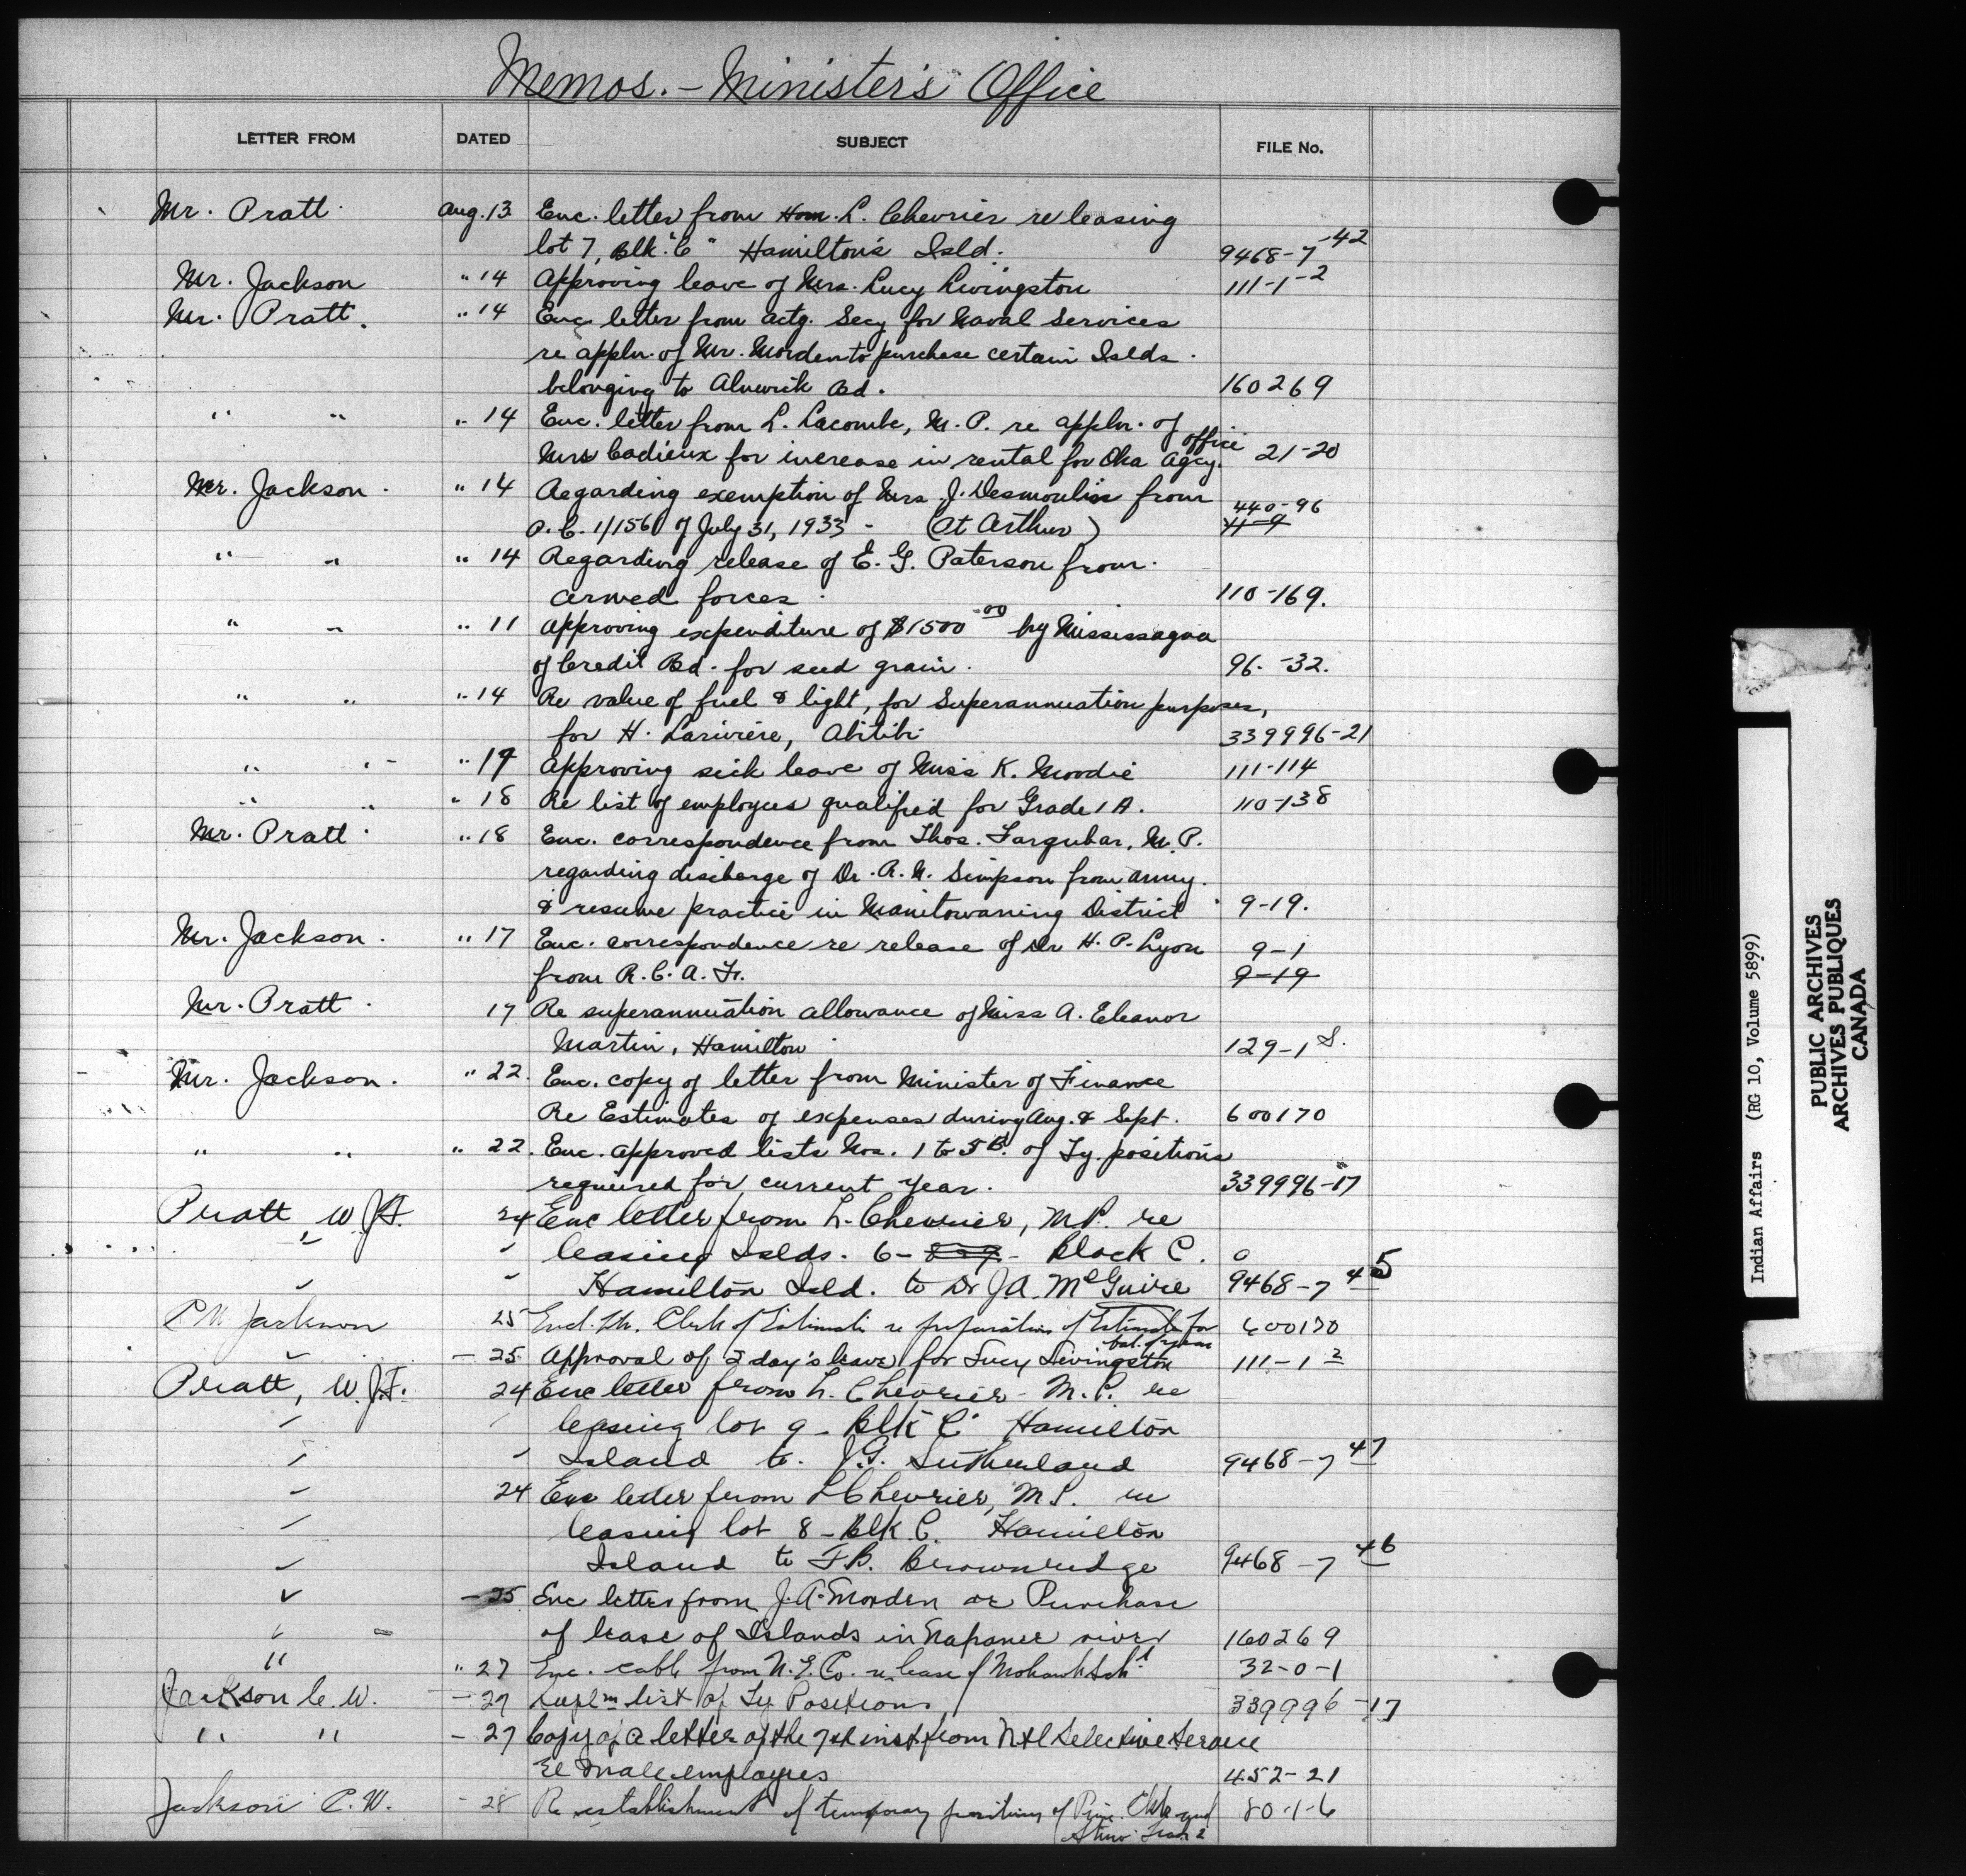 Memos. - Minister's Office
LETTER FROM DATED SUBJECT FILE No.
Mr. Pratt Aug. 13 Enc. letter from Hon. L. Chevrier re leasing
lot 7, Blk. "C" Hamilton's Isld. 9468-7-42
Mr. Jackson " 14 Approving leave of Mrs. Lucy Livingston 111-1-2
Mr. Pratt. " 14 Enc letter from Actg. Secy for Naval Services
re appln. of Mr. Morden to purchase certain Islds.
belonging to Alnwick Bd. 160269
" " " 14 Enc. letter from L. Lacombe, M.P. re appln. of
Mrs Cadieux for increase in rental for Oka Agcy. office 21-20
Mr. Jackson " 14 Regarding exemption of Mrs. J. Desmoulin from 440-96
P.C. 1/1560 of July 31, 1933 - (Pt Arthur) 11-9
" " " 14 Regarding release of E. G. Paterson from
armed forces 110-169.
" " " 11 Approving expenditure of $1500.00 by Mississagua
of Credit Bd. for seed grain. 96-32.
" " " 14 Re value of fuel & light, for Superannuation purposes,
for H. Lariviere, Abitibi 339996-21
" " " 14 Approving sick leave of Miss K. Moodie 111-114
" " " 18 Re list of employees qualified for Grade 1A. 110-138
Mr. Pratt " 18 Enc. correspondence from Thos. Farquhar, M.P.
regarding discharge of Dr. R. N. Simpson from army.
& resume practice in Manitowaning District 9-19.
Mr. Jackson. " 17 Enc. correspondence re release of Dr H. P. Lyon 9-1
from R.C.A.F. 9-19
Mr. Pratt 17 Re superannuation allowance of Miss A. Eleanor
Martin, Hamilton 129-1 S.
Mr. Jackson. " 22. Enc. copy of letter from Minister of Finance
Re Estimates of expenses during Aug. & Sept. 600170
" " " 22. Enc. approved lists Nos. 1 to 5B. of Ty. positions
required for current year. 339996-17
Pratt, W.J.F. 24 Enc letter from L. Chevrier, M.P. re
" " leasing Islds. 6- Block C.
" " Hamilton Isld. to Dr J.A. McGuire 9468-7 45
C W Jackson 25 Encl. Clerk of Estimates re preparation of Estimate for bal. of year 600170
" - 25 Approval of 2 day's leave for Lucy Livingston 111-1 2
Pratt, W.J.F. 24 Enc letter from L. Chevrier - M.P. re
" " leasing lot 9 - Blk C Hamilton
" " Island to. J.G. Sutherland 9468-7 47
" 24 Enc letter from L Chevrier, M.P. re
" leasing lot 8 - Blk C. Hamilton
" Island to F.B. Brownridge 9468-7 46
" - 25 Enc letter from J.A. Morden re Purchase
" of lease of Islands in Napanee river 160269
" " 27 Enc. cable from N.E. Co. re lease of Mohawk Schl 32-0-1
Jackson C.W. - 27 Suplm list of Ty Positions 339996-17
" " - 27 Copy of a letter of the 7th inst from Ntl Selective Service
re male employees 452-21
Jackson C.W. - 28 Re establishment of temporary positions of Prin. Clk and 80-1-6
Steno Grade 2
Indian Affairs (RG 10, Volume 5899)
PUBLIC ARCHIVES
ARCHIVES PUBLIQUES
CANADA